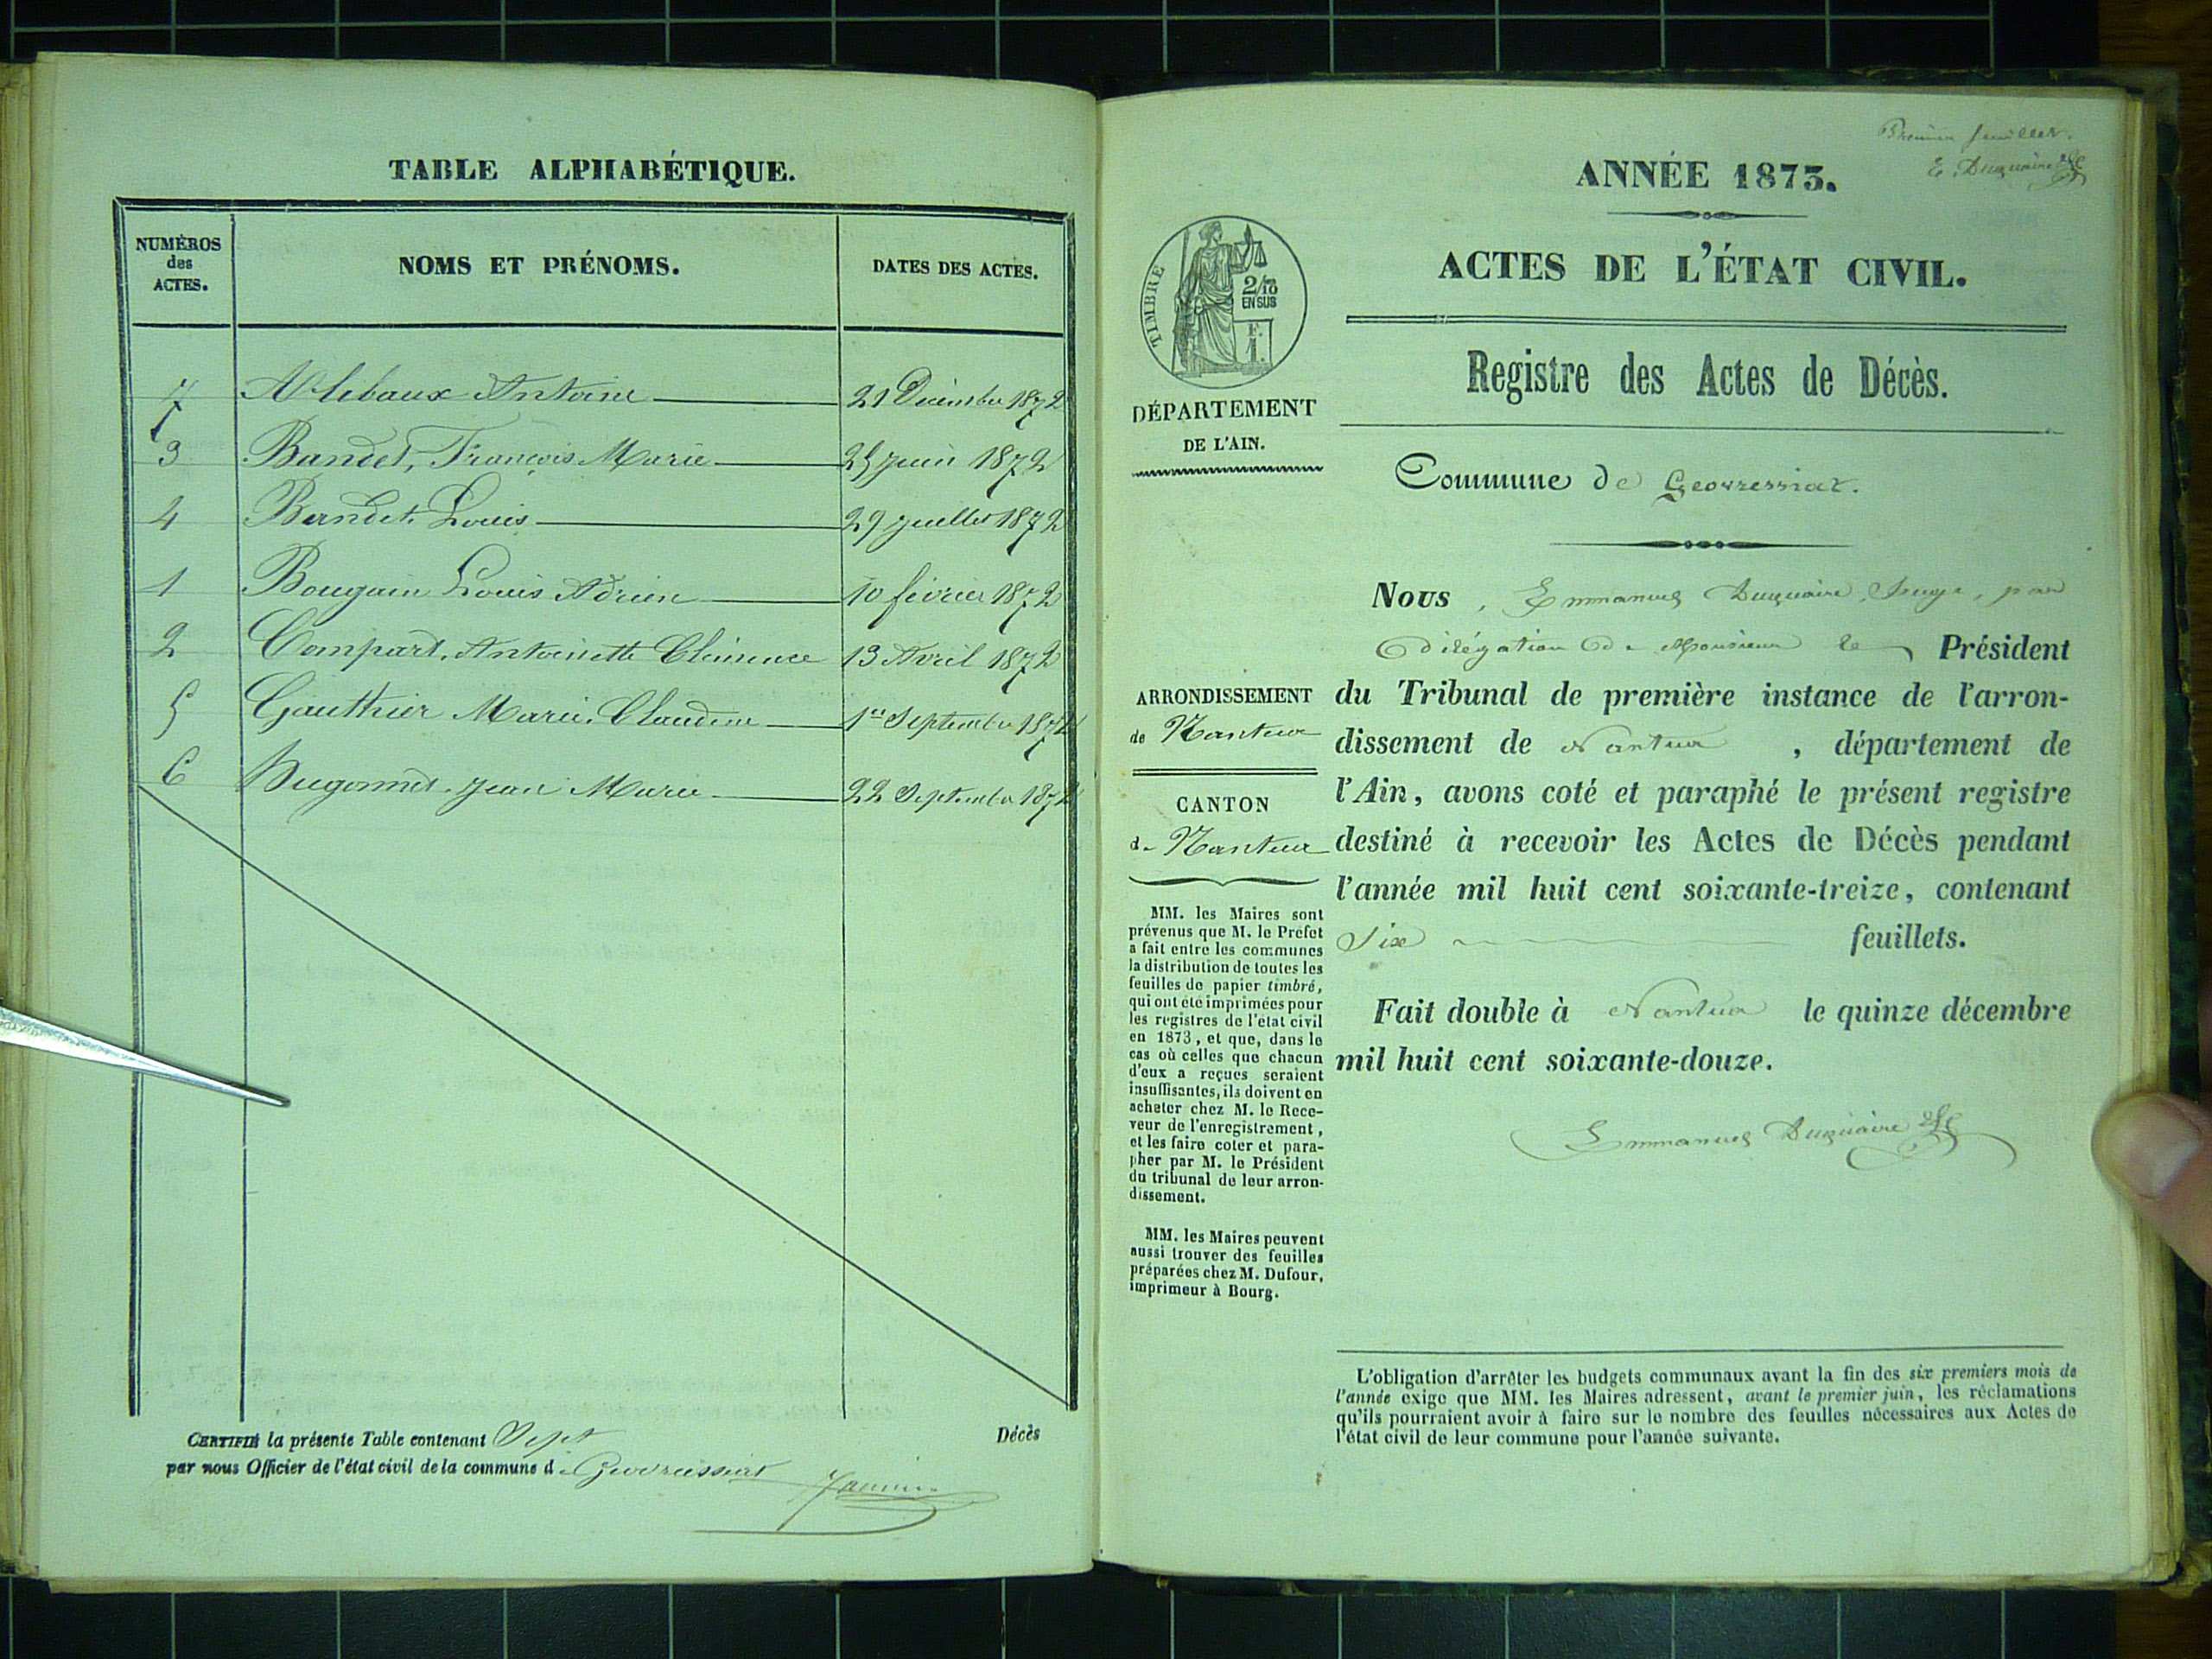 TABLE ALPHABÉTIQUE.
NUMÉROS
des
ACTES.
NOMS ET PRÉNOMS.
DATES DES ACTES.
7 Antoine 21 Décembre 1872
3 Bandet, François Marie 25 juin 1872
4 Bandet Louis 29 juillet 1872
1 Bougain Louis Adrien 10 février 1872
2 Compart, Antoinette Clémence 13 Avril 1872
5 Gauthier Marie, Claudine 1er Septembre 1872
6 Hugonnet Jean Marie 22 Septembre 1872
CERTIFIÉ la présente Table contenant Sept Décès
par nous Officier de l'état civil de la commune de Geovressiat
Premier feuillet.
E. Duquaire
ANNÉE 1873.
TIMBRE
2/10
EN SUS
F.
1.
ACTES DE L'ÉTAT CIVIL.
Registre des Actes de Décès.
DÉPARTEMENT
DE L'AIN.
Commune de Geovressiat.
Nous, Emmanuel Duquaire, Juge, par
délégation de Monsieur le Président
du Tribunal de première instance de l'arron-
dissement de Nantua, département de
l'Ain, avons coté et paraphé le présent registre
destiné à recevoir les Actes de Décès pendant
l'année mil huit cent soixante-treize, contenant
Six feuillets.
Fait double à Nantua le quinze décembre
mil huit cent soixante-douze.
Emmanuel Duquaire
ARRONDISSEMENT
de Nantua
CANTON
de Nantua
MM. les Maires sont
prévenus que M. le Préfet
a fait entre les communes
la distribution de toutes les
feuilles de papier timbré,
qui ont été imprimées pour
les registres de l'état civil
en 1873, et que, dans le
cas où celles que chacun
d'eux a reçues seraient
insuffisantes, ils doivent en
acheter chez M. le Rece-
veur de l'enregistrement,
et les faire coter et para-
pher par M. le Président
du tribunal de leur arron-
dissement.
MM. les Maires peuvent
aussi trouver des feuilles
préparées chez M. Dufour,
imprimeur à Bourg.
L'obligation d'arrêter les budgets communaux avant la fin des six premiers mois de
l'année exige que MM. les Maires adressent, avant le premier juin, les réclamations
qu'ils pourraient avoir à faire sur le nombre des feuilles nécessaires aux Actes de
l'état civil de leur commune pour l'année suivante.